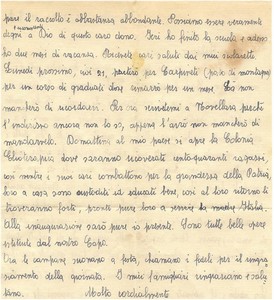 pare il raccolto è abbastanza abbondante. Possiamo essere veramente
riconoscenti
a Dio di questo caro dono. Ieri ho finito la scuola e adesso
ho due mesi di vacanza. Ricevete cari saluti dai miei scolaretti.
Lunedì prossimo, noi 21, partirò per Carpineti (posto di montagna)
per un corso di graduati che rimarrò per un mese. Lo non
mancherò di ricordarvi. Per ora scrivetemi a Novellara perchè
l'indirizzo ancora non lo so, appena l'avrò non mancherò di
mandarvelo. Domattina al mio paese si apre la Colonia
Elioterapica dove saranno ricoverati cento quaranta ragazzi,
così mentre i suoi cari combattono per la grandezza della Patria,
loro a casa sono custoditi ed educati bene, così al loro ritorno li
troveranno forti, pronti pure loro a servire la nostra Italia.
Alla inaugurazione sarò pure io presente. Sono tutte belle opere
istituite dal nostro Capo.
Ora le campane suonano a festa, chiamano i fedeli per il ringra-
ziamento della giornata. I miei famigliari ringraziano e salu-
tano. Molto cordialmente